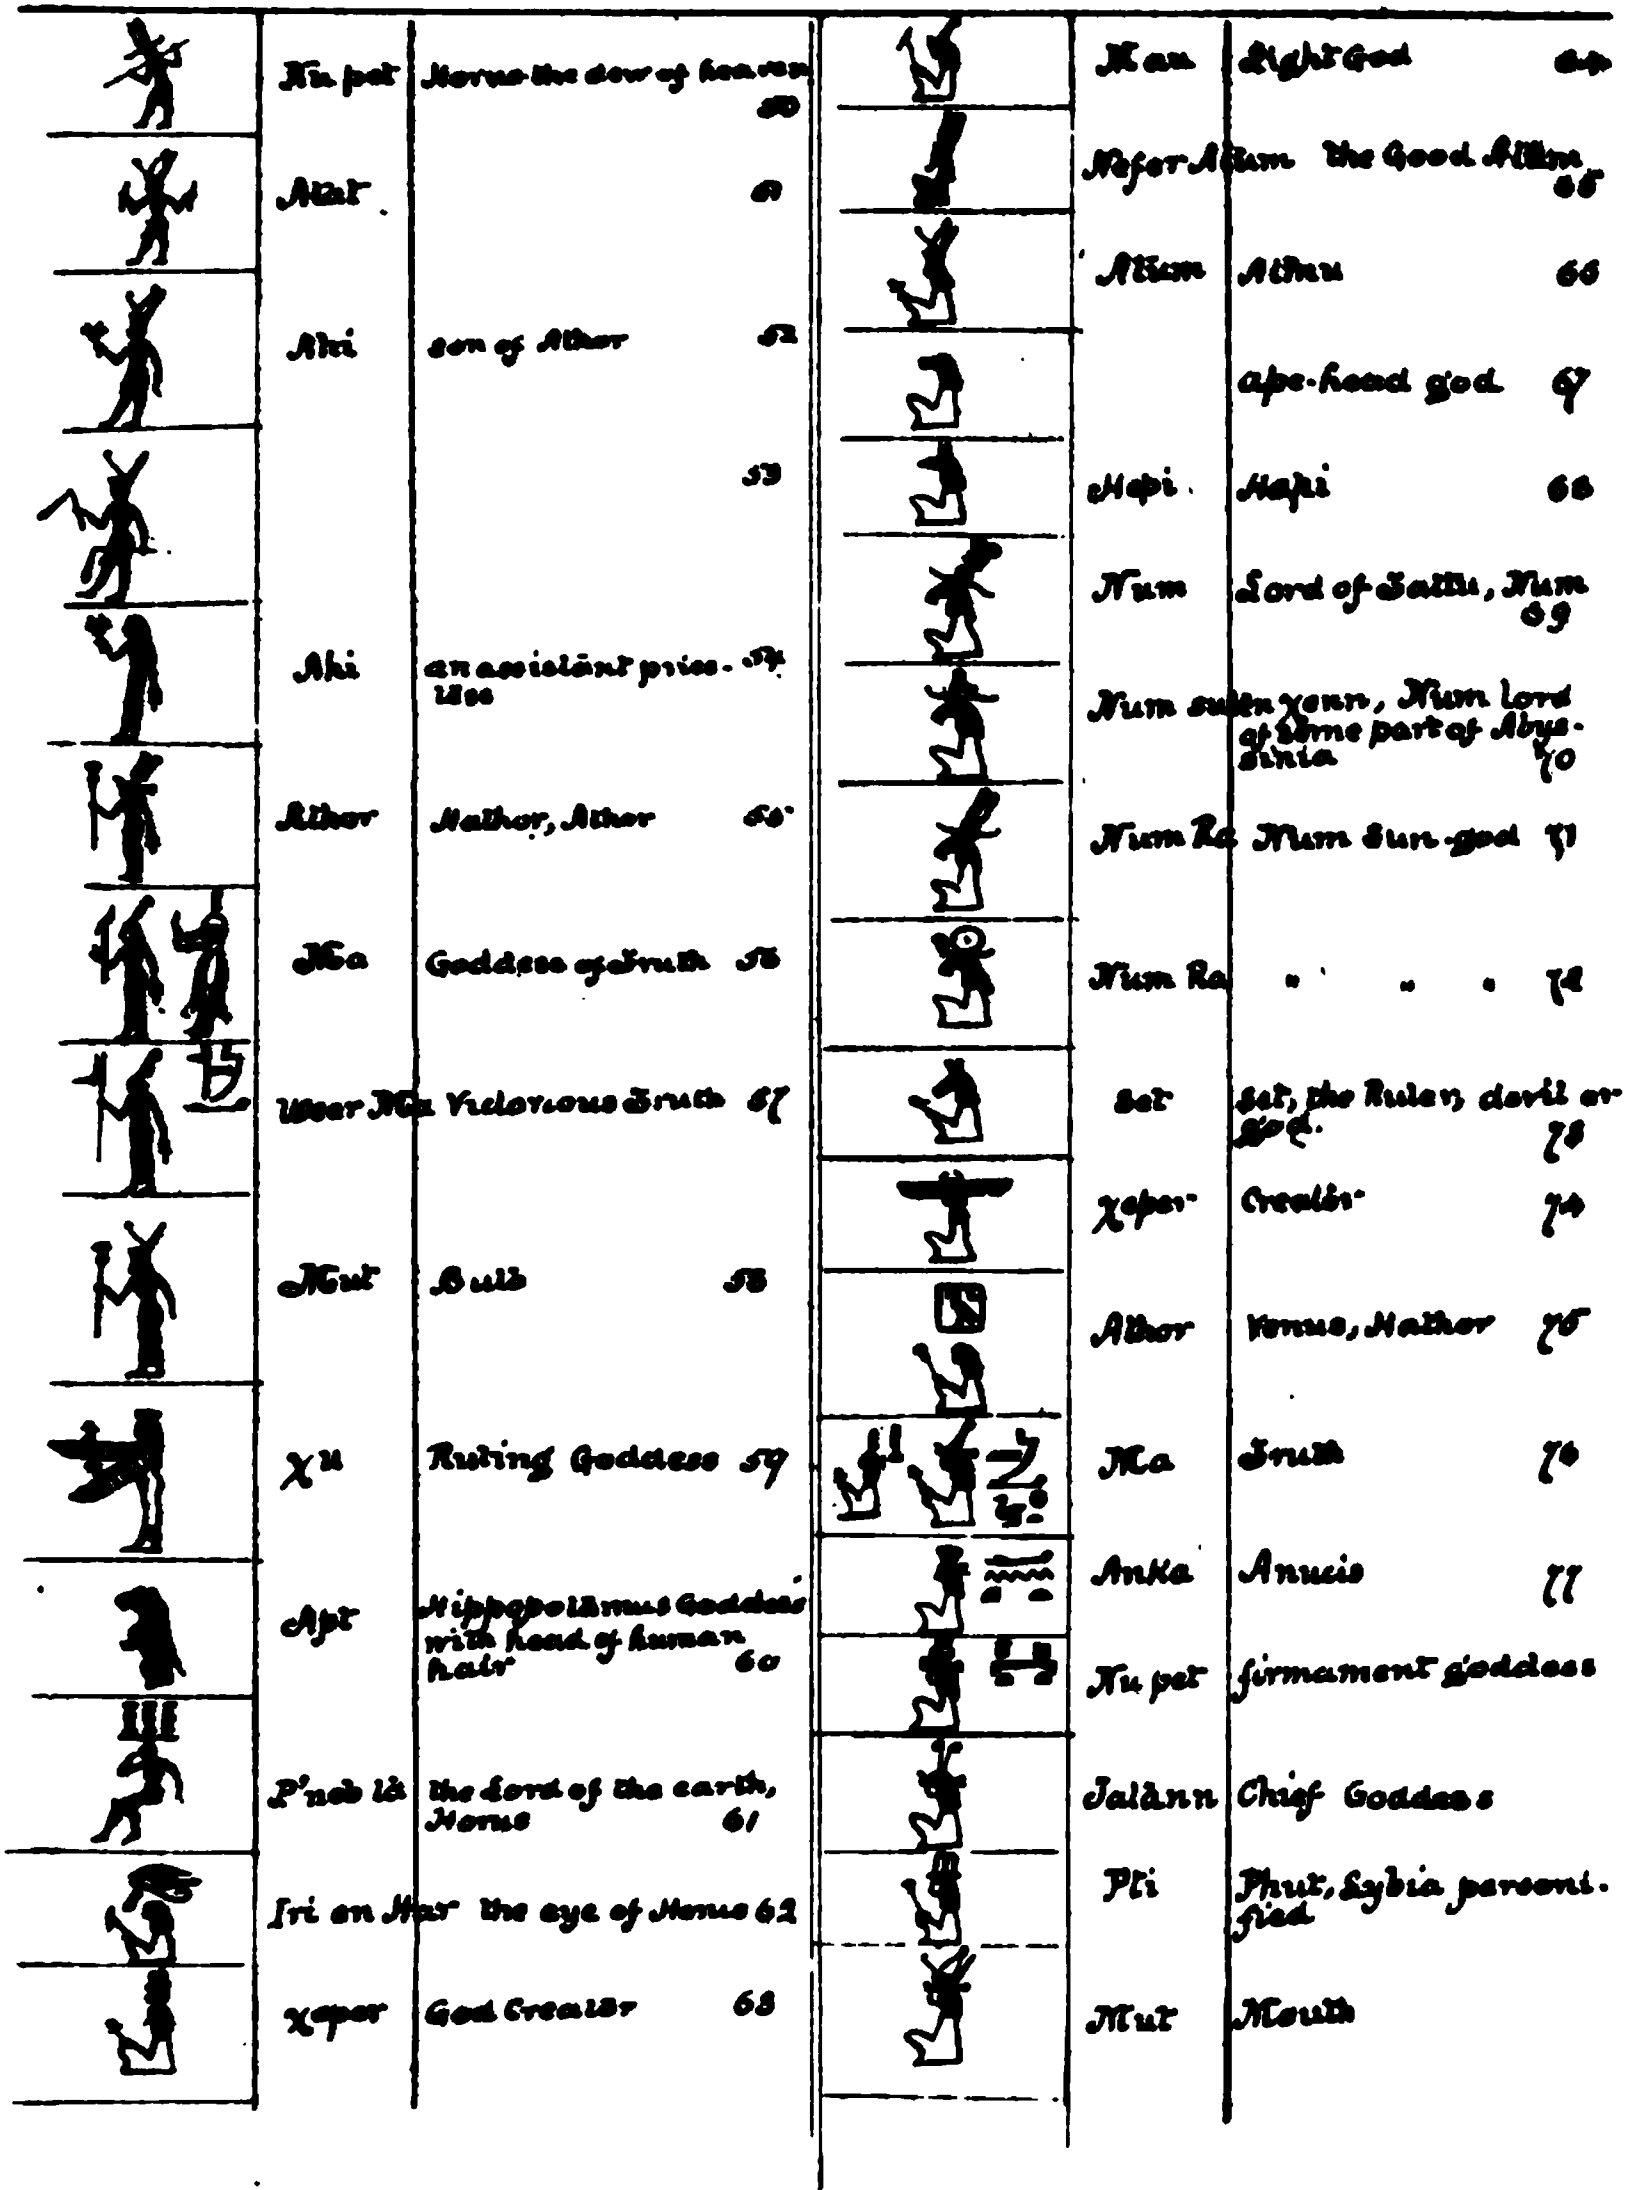 Nu pet Horus the dew of heaven
50
Atat 51
Ahi son of Athor 52
53
Ahi an assistant pries-
tess 54
Athor Hathor, Athor 55
Ma Goddess of Truth 56
User Ma Victorious Truth 57
Mut Buto 58
χu Ruling Goddess 59
Apt Hippopotamus Goddess
with head of human
hair 60
P'neb ta the Lord of the earth,
Horus 61
Iri en Har the eye of Horus 62
χeper God Creator 63
Mau Light God 64
Nefer Atum the Good Atum
65
Atum Atmu 66
ape-head god 67
Hepi Hapi 68
Num Lord of Sattu, Num
69
Num suten χenn, Num lord
of some part of Abys-
sinia 70
Num Ra Num Sun-god 71
Num Ra " " " 72
Set Set, the Ruler, devil or
god. 73
χeper Creator 74
Athor Venus, Hathor 75
Ma Truth 76
Anka Anucis 77
Nu pet firmament goddess
Jatann Chief Goddess
Pti Phut, Lybia personi-
fied
Mut Mouth